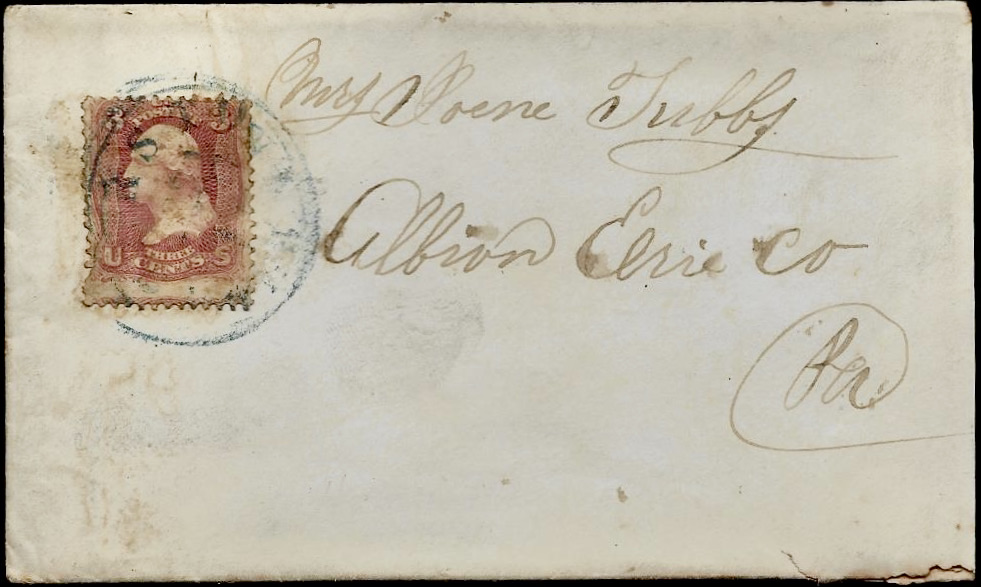 Mrs Tubbs
Albion Erie Co
Pa.
3 3
U THREE S
CENTS